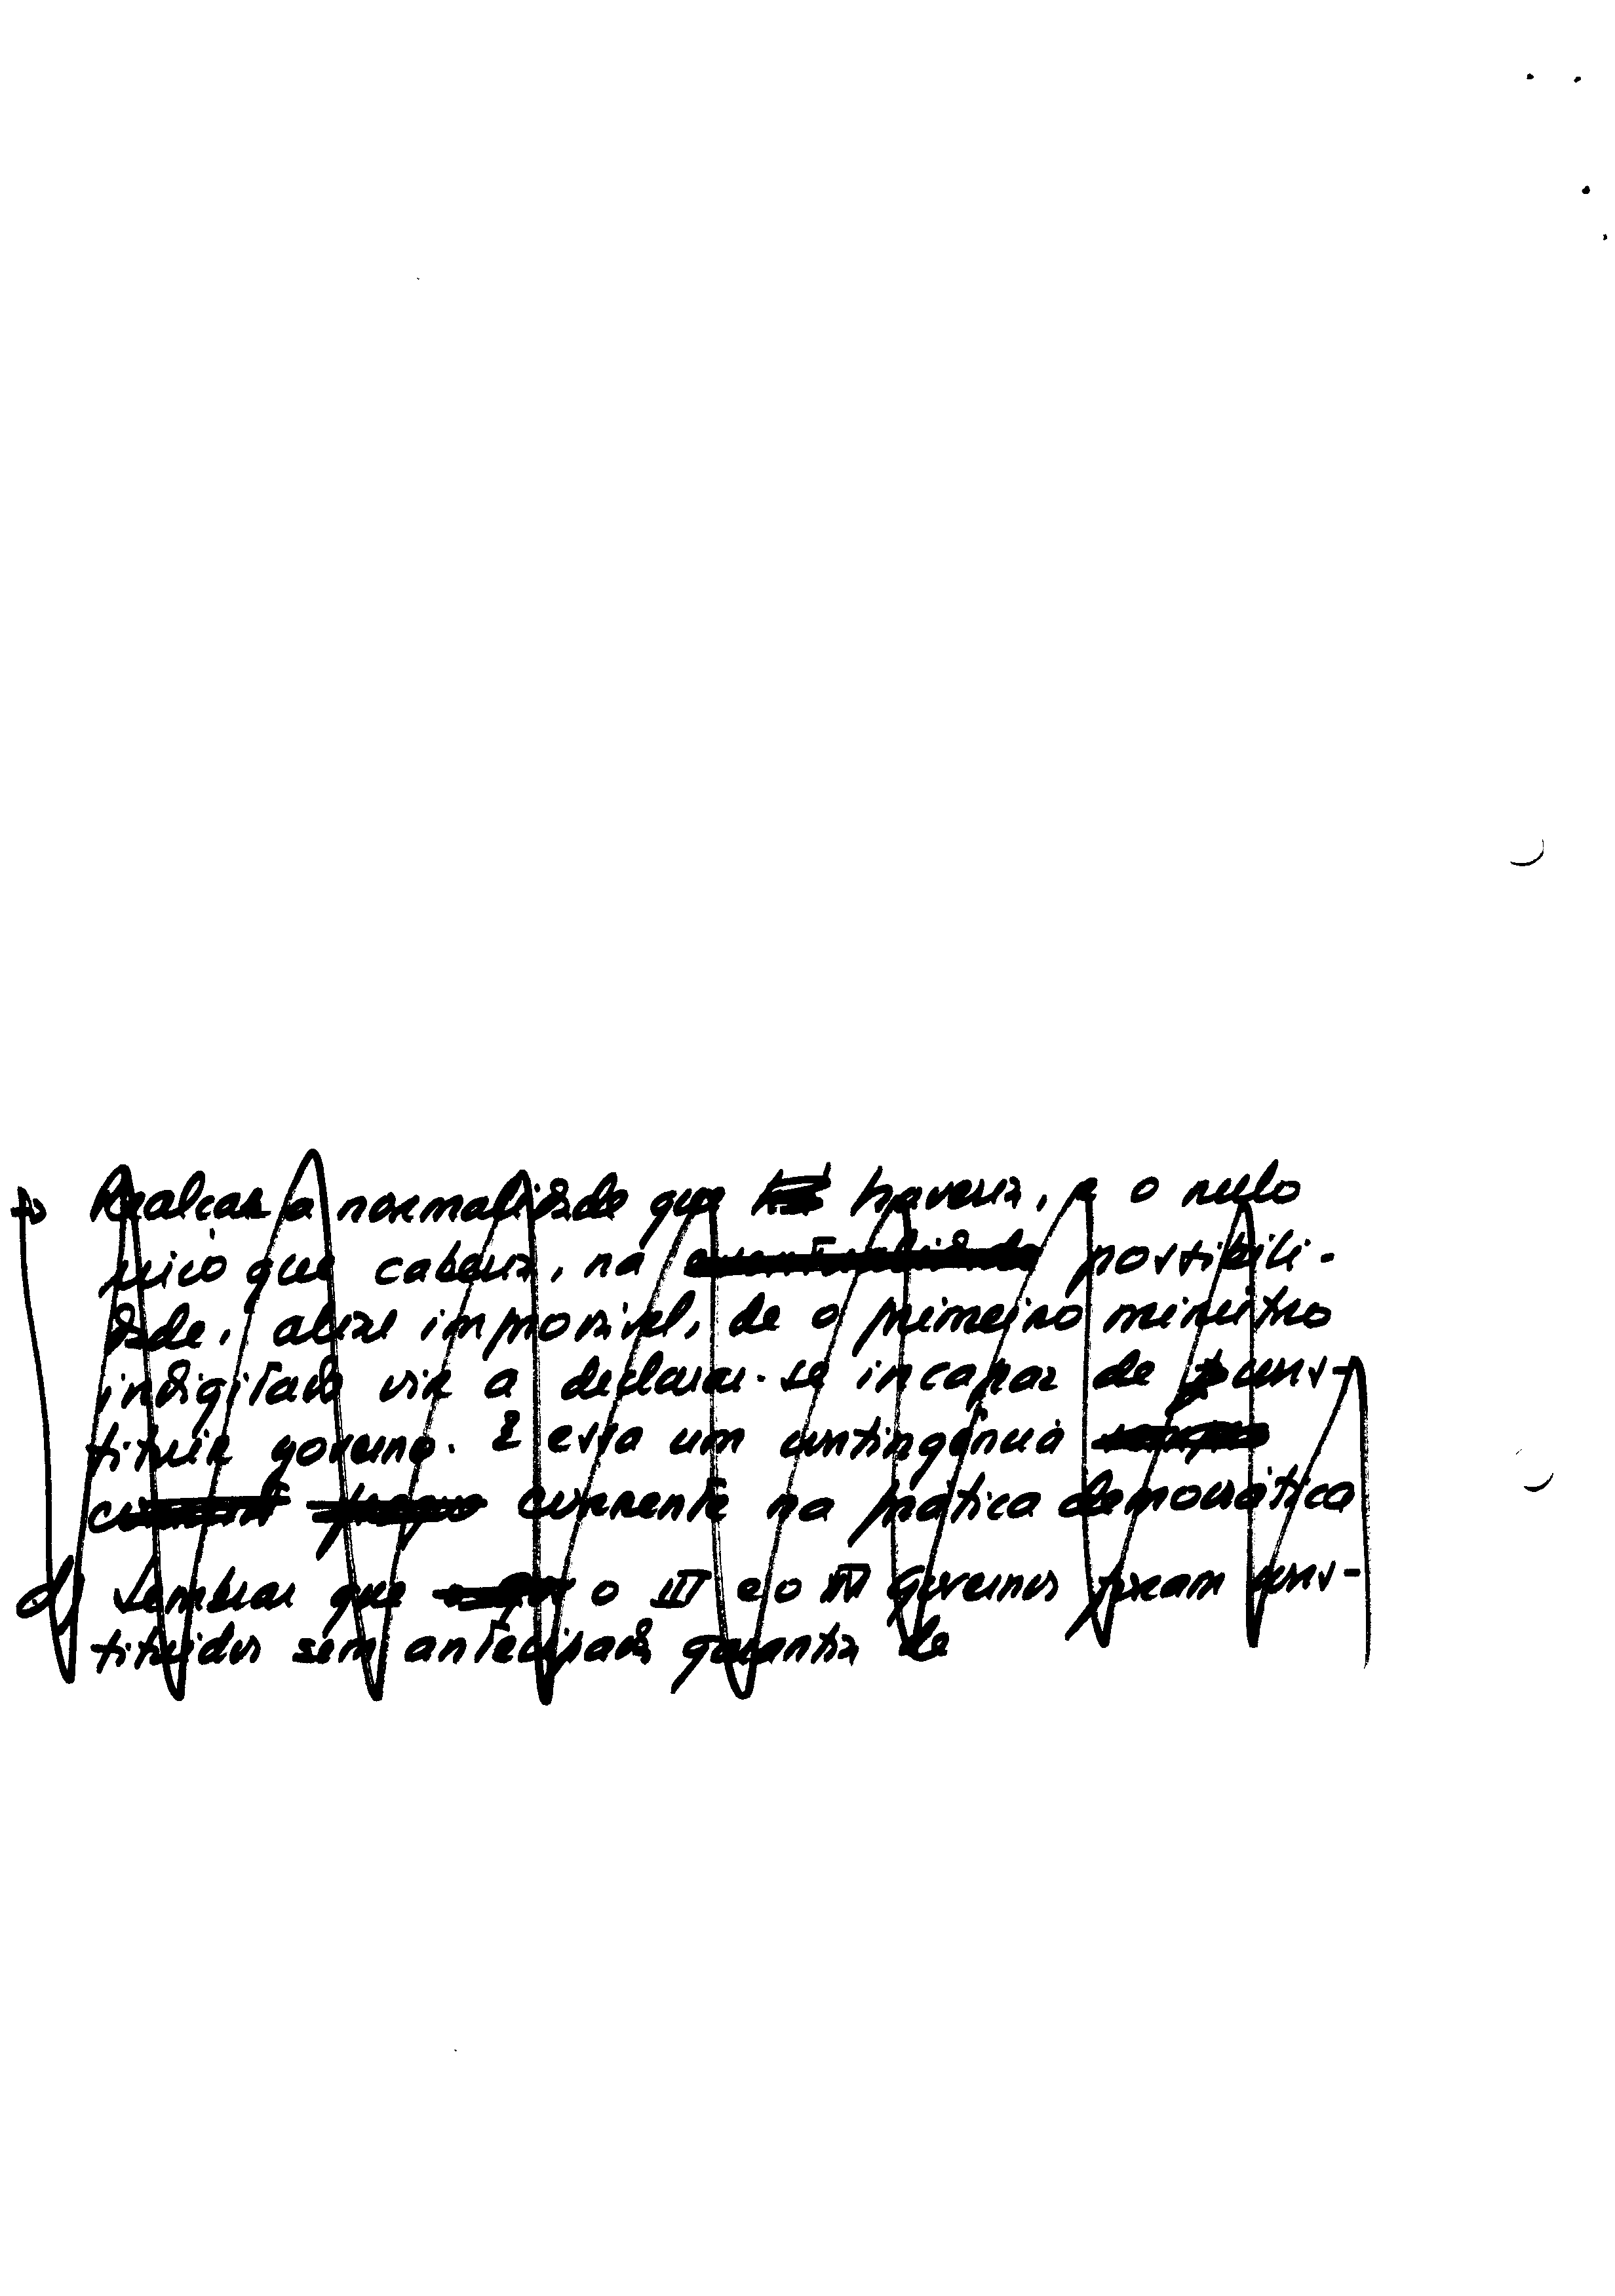 Realçar a normalidade que haveria, e o nulo
juízo que caberia, na possibili-
dade, aliás improvável, de o primeiro ministro
indigitado vir a declarar-se incapaz de cons-
tituir governo. É essa um contingência
corrente na prática democrática
d) Lembrar que o III e o IV governos foram cons-
tituídos sem antecipada garantia de